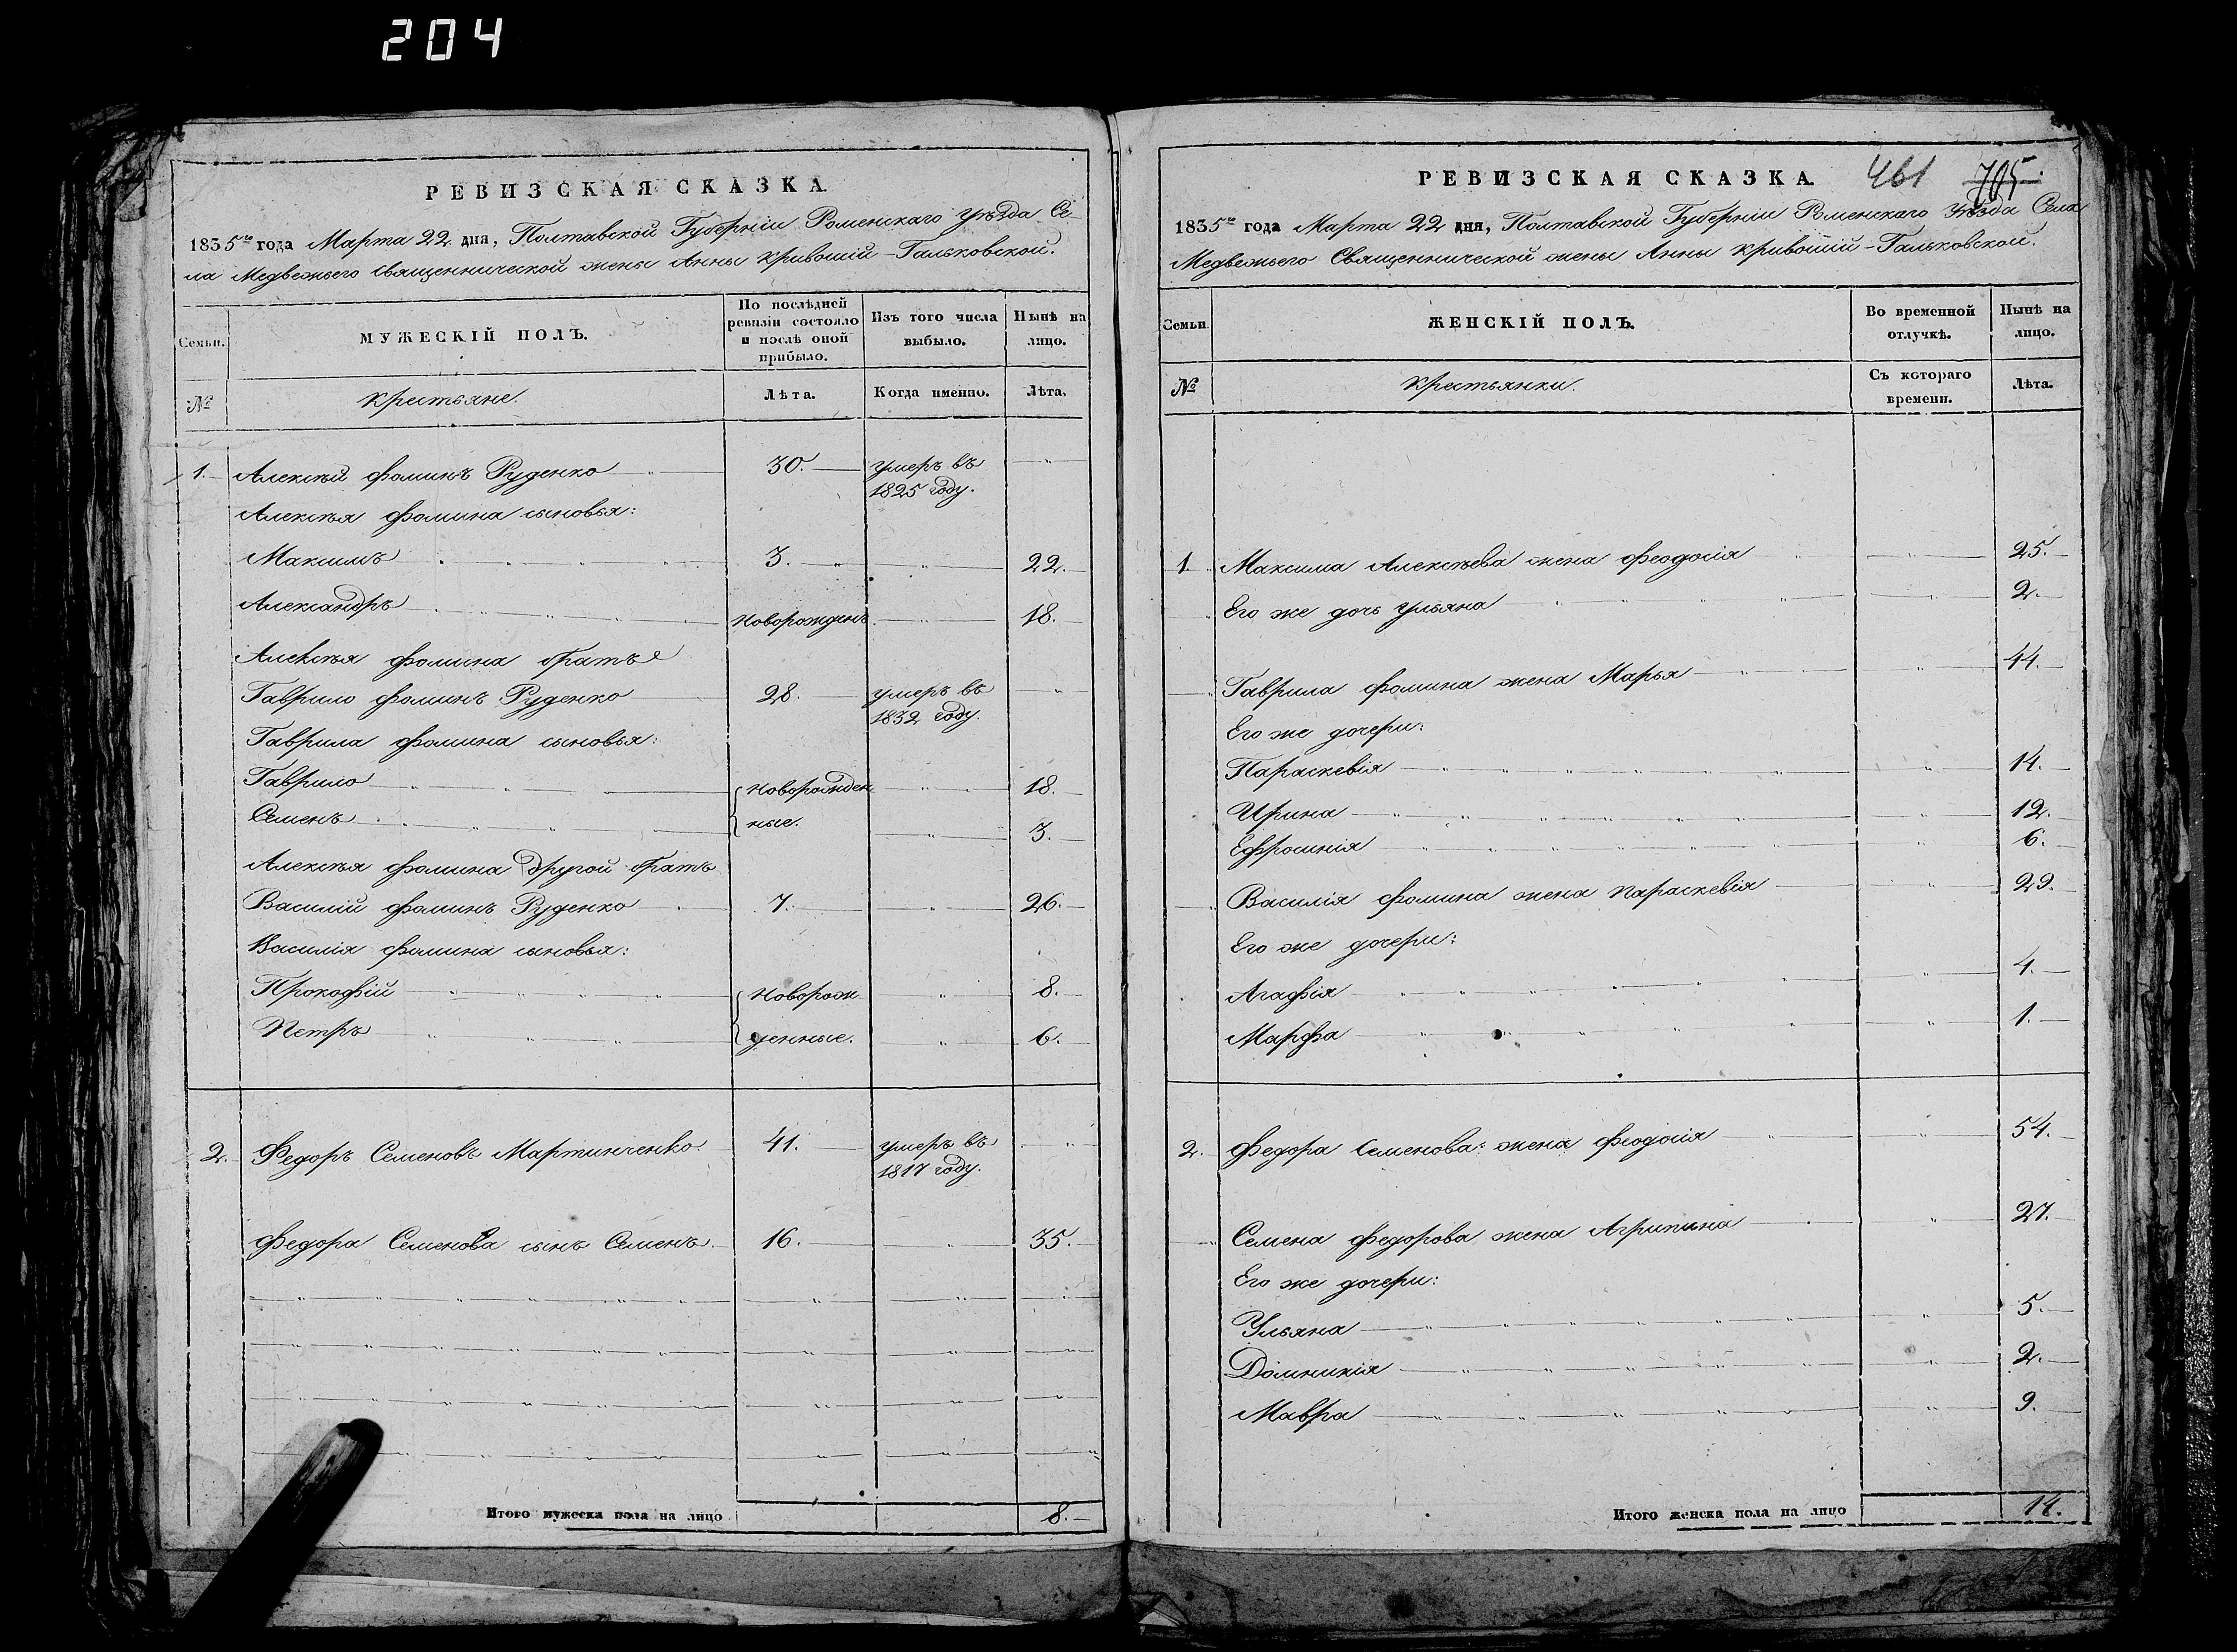 204
РЕВИЗСКАЯ СКАЗКА
1835го года Марта 22 дня, Полтавской Губерніи Роменскаго Уѣзда Се-
ла Медвежьего Священнической жены Анны Кривошій-Гальковской.
Семьи.
МУЖЕСКІЙ ПОЛЪ.
По послѣдней ревизіи состояло и послѣ оной прибыло.
Изъ того числа выбыло.
Нынѣ на лицо.
№
Крестьяне.
Лѣта.
Когда именно.
Лѣта.
1. Алексѣй Фоминъ Руденко 30. умеръ въ
1825 году.
Алексѣя Фомина сыновья:
Максимъ 3. 22.
Александръ новорожденъ 18.
Алексѣя Фомина братъ
Гаврило Фоминъ Руденко 28. умеръ въ
1832 году.
Гаврила Фомина сыновья:
Гаврило новорожден 18.
Семенъ ные. 3.
Алексѣя Фомина другой братъ
Василій Фоминъ Руденко 7. 26.
Василія Фомина сыновья:
Прокофій новорож 8.
Петръ денные. 6.
2. Федоръ Семеновъ Мартинченко 41. умеръ въ
1817 году.
Федора Семенова сынъ Семенъ 16. 35.
Итого мужеска пола на лицо 8.
РЕВИЗСКАЯ СКАЗКА. 461 705.
1835го года Марта 22 дня, Полтавской Губерніи Роменскаго Уѣзда Села
Медвежьего Священнической жены Анны Кривошій-Гальковской.
Семьи.
ЖЕНСКІЙ ПОЛЪ.
Во временной отлучкѣ.
Нынѣ на лицо.
№
Крестьянки.
Съ котораго времени.
Лѣта.
1. Максима Алексѣева жена Феодосія 25.
Его же дочь Ульяна 2.
Гаврила Фомина жена Марья 44.
Его же дочери:
Параскевія 14.
Ирина 12.
Ефросинія 6.
Василія Фомина жена Параскевія 29.
Его же дочери:
Агафія 4.
Марфа 1.
2. Федора Семенова жена Феодосія 54.
Семена Федорова жена Агрипина 27.
Его же дочери:
Ульяна 5.
Домникія 2.
Мавра 9.
Итого женска пола на лицо 14.